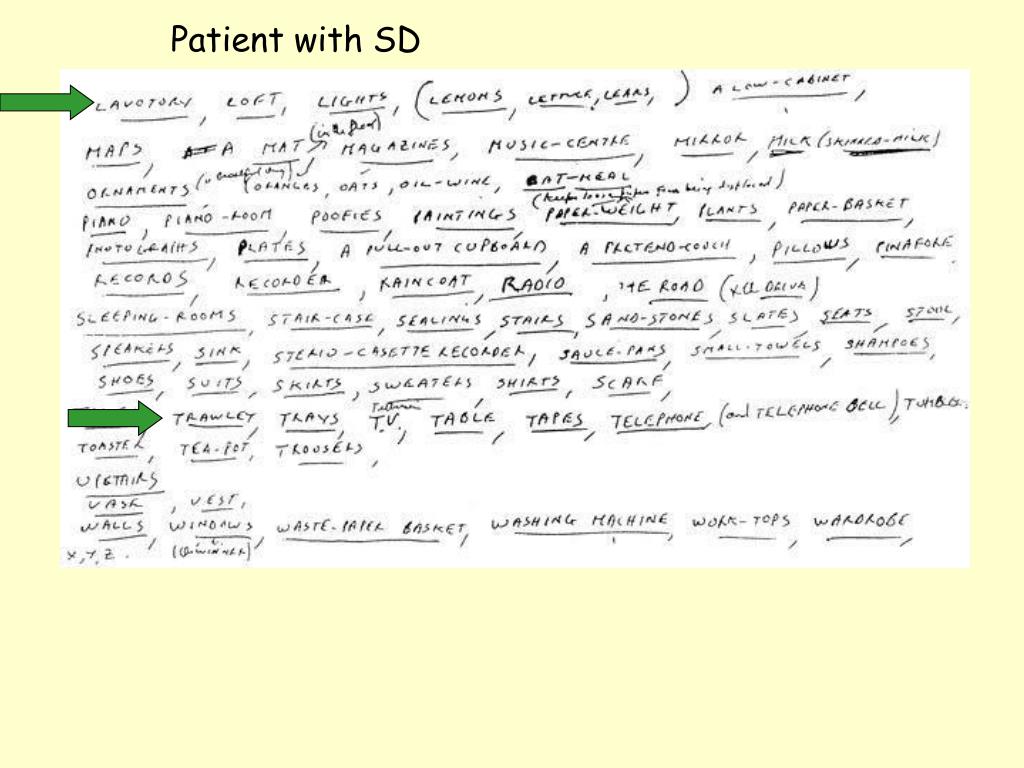 Patient with SD
LAVOTORY, LOFT, LIGHTS, (LEMONS, LETTUCE, LEARS,) A LOW-CABINET,
MAPS, A MAT (in the floor), MAGAZINES, MUSIC-CENTRE, MIRROR, MILK (SKIMMED-MILK)
ORNAMENTS ( ORANGES, OATS, OIL-WINE, OAT-MEAL
PIANO, PIANO-ROOM, POOFIES, PAINTINGS, PAPER-WEIGHT, (keeps loose from being displaced) PLANTS, PAPER-BASKET,
PHOTOGRAPHS, PLATES, A PULL-OUT CUPBOARD, A PRETEND-COUCH, PILLOWS, PINAFORE
RECORDS, RECORDER, RAINCOAT, RADIO, THE ROAD
SLEEPING-ROOMS, STAIR-CASE, SEALINGS, STAIRS, SAND-STONES, SLATES, SEATS, STOOL,
SPEAKERS, SINK, STERIO-CASETTE RECORDER, SAUCE-PANS, SMALL-TOWELS, SHAMPOES,
SHOES, SUITS, SKIRTS, SWEATERS, SHIRTS, SCARF,
TRAWLEY, TRAYS, T.V., TABLE, TAPES, TELEPHONE, (and TELEPHONE BELL), TUMBLE
TOASTER, TEA-POT, TROUSERS,
UPSTAIRS
VASE, VEST,
WALLS, WINDOWS, WASTE-PAPER BASKET, WASHING MACHINE, WORK-TOPS, WARDROBE,
X, Y, Z.